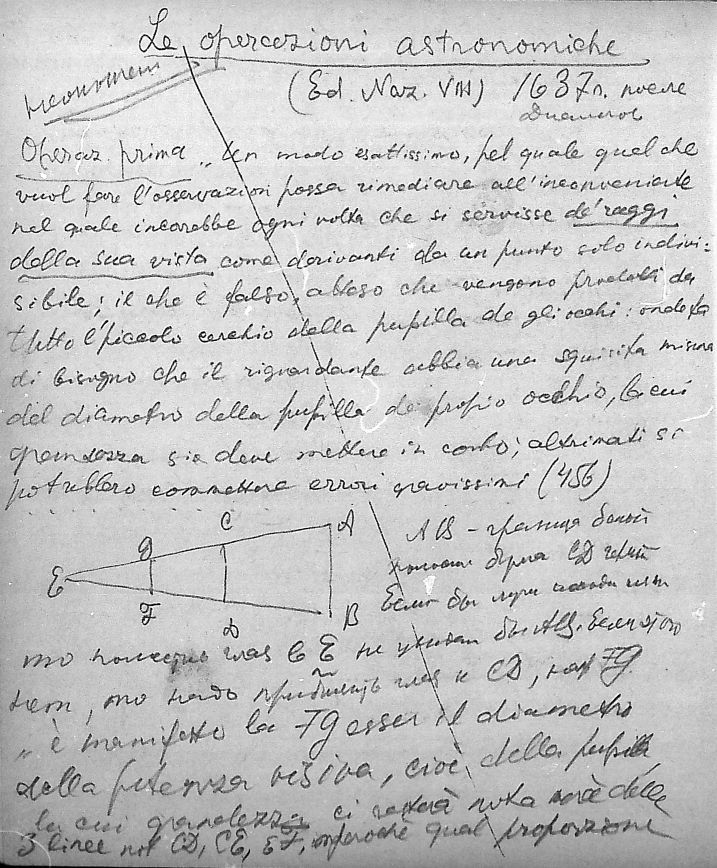 Le opercezioni astronomiche
(Ed. Naz. VIII) 1637г. после
Диалогов
Operaz. prima „Un modo esattissimo, pel quale quel che
vuol fare l'osservazioni possa rimediare all'inconveniente
nel quale incorrebbe ogni volta che si servisse de' raggi
della sua vista come derivanti da un punto solo indivi-
sibile; il che è falso, atteso che vengono prodotti da
tutto l'piccolo cerchio della pupilla de gli occhi: onde fa
di bisogno che il riguardante abbia una squisita misura
del diametro della pupilla de propio occhio, la cui
grandezza sia deve mettere in conto; altrimati si
potrebbero commettere errori gravissimi (456)
E F g D C A B
AB – граница белой
полосы бумаги CD черн
Если бы лучи
то помещая глаз в E не увидел бы AB. Если это
нет, то надо приблизить глаз к CD, как Fg.
„è manifesto la Fg esser il diametro
della potenza visiva, cioè della pupilla,
la cui grandezza ci resterà nota mercè delle
3 linee not CD, CE, EF, imperochè qual proporzione